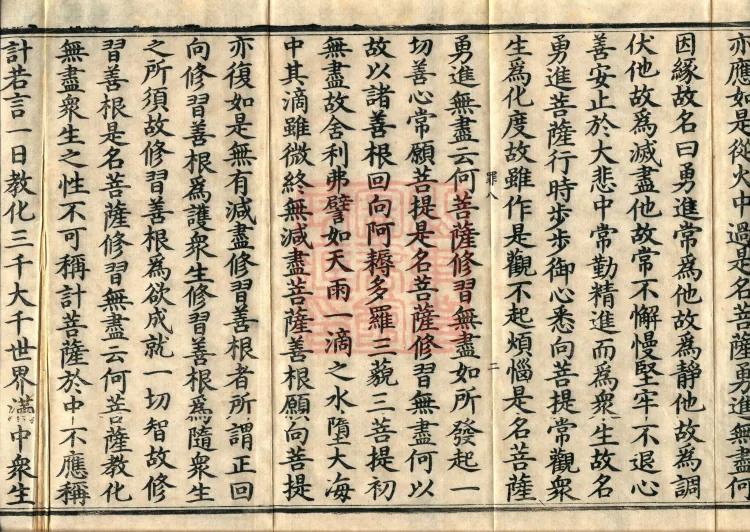 亦應如是從火中過是名菩薩勇進無盡何
因緣故名曰勇進常爲他故爲靜他故爲調
伏他故爲滅盡他故常不懈慢堅牢不退心
善安止於大悲中常勤精進而爲衆生故名
勇進菩薩行時步步御心悉向菩提常觀衆
生爲化度故雖作是觀不起煩惱是名菩薩
罪八 二
勇進無盡云何菩薩修習無盡如所發起一
切善心常願菩提是名菩薩修習無盡何以
故以諸善根回向阿耨多羅三藐三菩提初
無盡故舍利弗譬如天雨一滴之水墮大海
中其滴雖微終無減盡菩薩善根願向菩提
亦復如是無有減盡修習善根者所謂正回
向修習善根爲護衆生修習善根爲隨衆生
之所須故修習善根爲欲成就一切智故修
習善根是名菩薩修習無盡云何菩薩教化
無盡衆生之性不可稱計菩薩於中不應稱
計若言一日教化三千大千世界滿中衆生